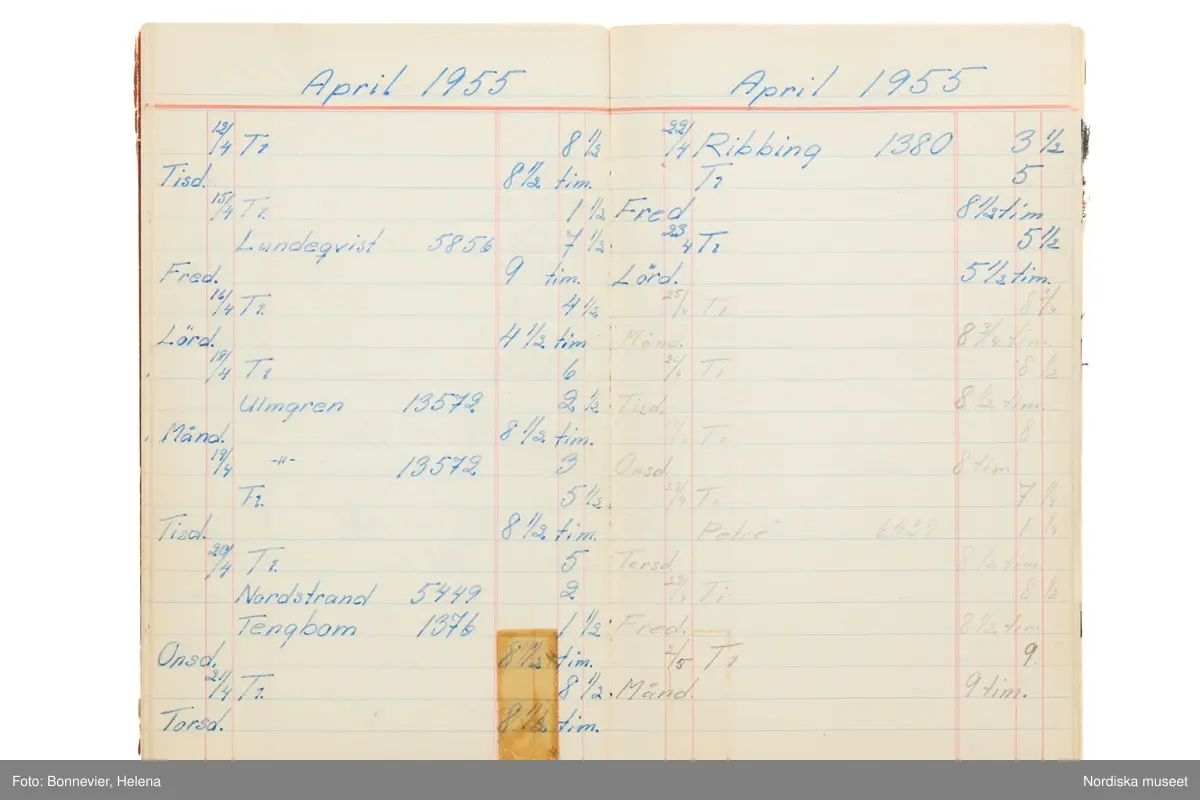 April 1955
12/4 Ti 8 1/2
Tisd. 8 1/2 tim.
15/4 Ti. 1 1/2
Lundeqvist 5856 7 1/2
Fred. 9 tim.
16/4 Ti. 4 1/2
Lörd. 4 1/2 tim
18/4 Ti 6
Ulmgren 13572 2 1/2
Månd. 8 1/2 tim.
19/4 -"- 13572 3
Ti. 5 1/2
Tisd. 8 1/2 tim.
20/4 Ti. 5
Nordstrand 5449 2
Tengbom 1376 1 1/2
Onsd. 8 1/2 tim.
21/4 Ti. 8 1/2
Torsd. 8 1/2 tim.
April 1955
22/4 Ribbing 1380 3 1/2
Ti 5
Fred 8 1/2 tim
23/4 Ti 5 1/2
Lörd. 5 1/2 tim.
25/4 Ti 8 3/4
Månd. 8 3/4 tim.
26/4 Ti 8 1/2
Tisd. 8 1/2 tim.
Ti 8
Onsd. 8 tim
28/4 Ti 7 1/4
Petré 6439 1 1/4
Torsd. 8 1/2 tim.
29/4 Ti 8 1/2
Fred. 8 1/2 tim
2/5 Ti 9
Månd. 9 tim.
Foto: Bonnevier, Helena
Nordiska museet